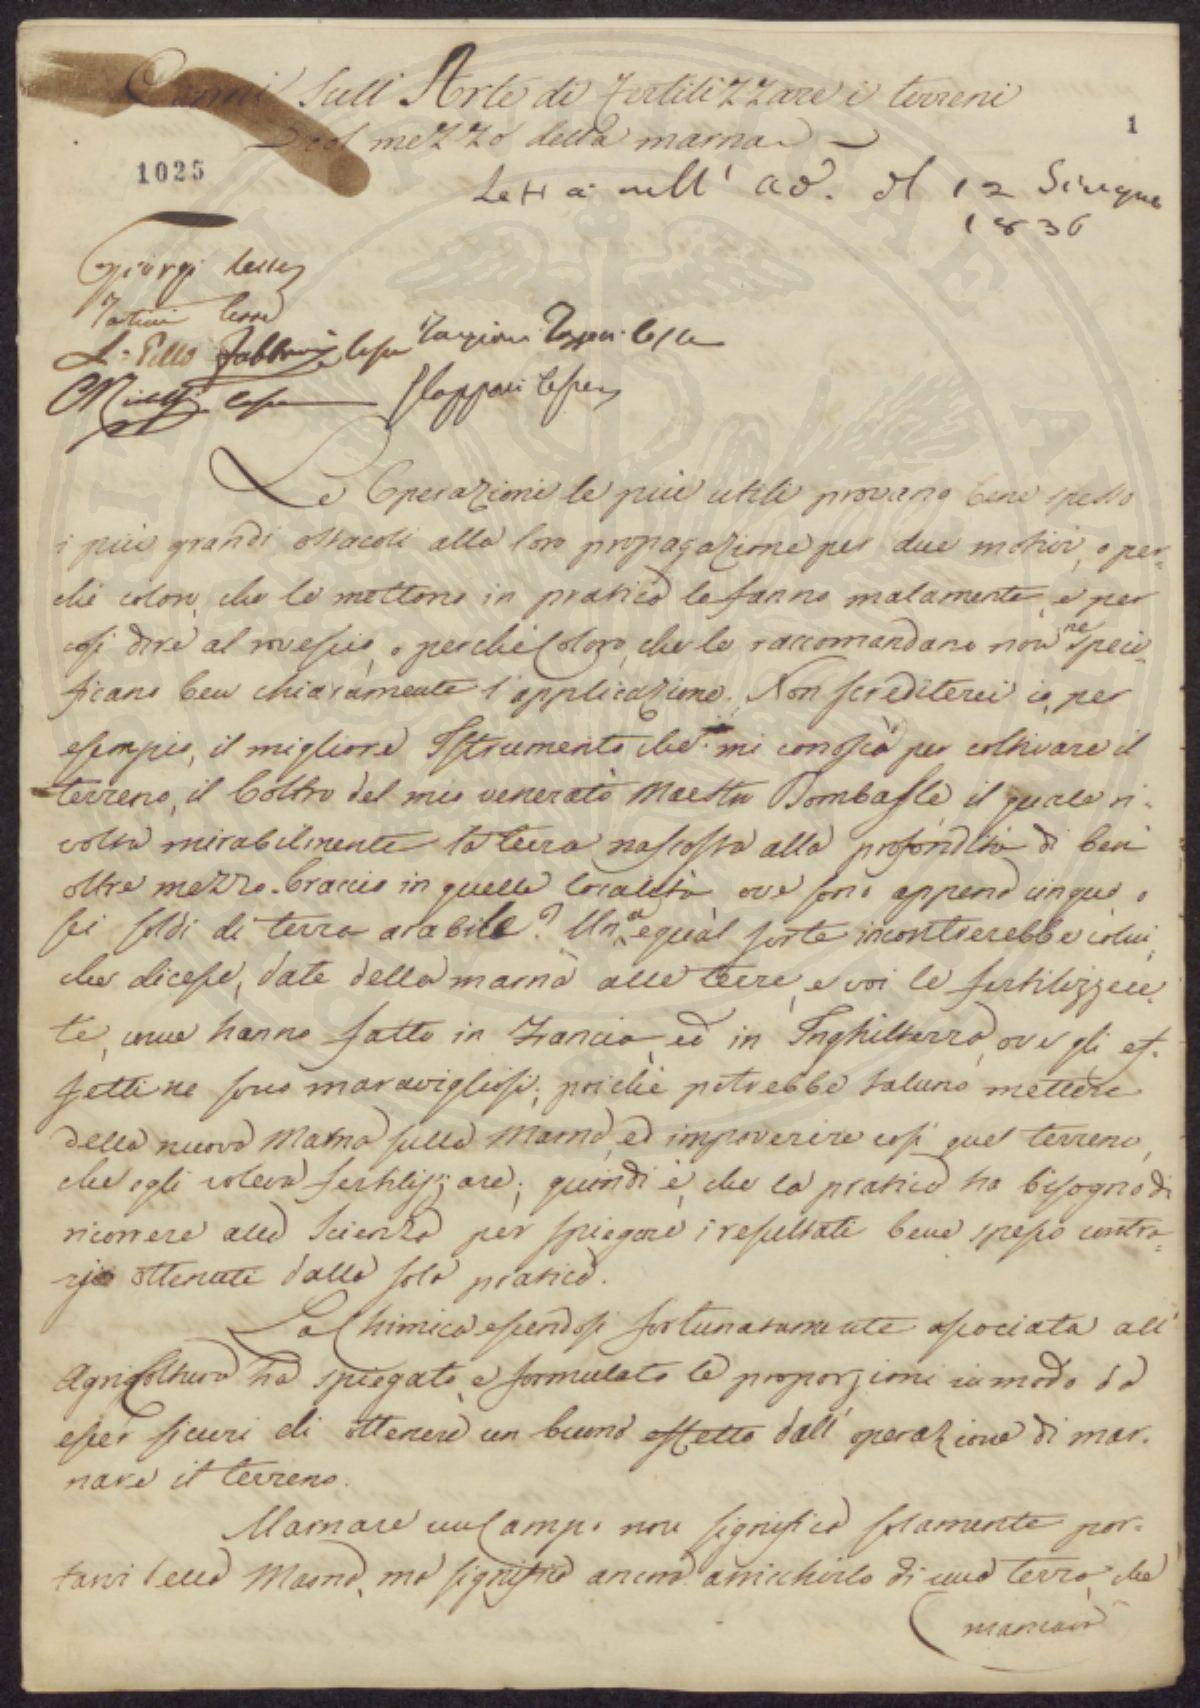 Cenni sull'Arte di Fertilizzare i terreni
col mezzo della marna
1
1025
Letta nell' ad. del 12 Giugno
1836
Giorgi lesse
Tartini lesse
L. Pello Fabbroni lesse Targioni Tozzetti lesse
C Ridolfi lesse lesse
Le Operazioni le più utili provano bene spesso
i più grandi ostacoli alla loro propagazione per due motivi, o per-
chè coloro, che le mettono in pratica le fanno malamente, e per
così dire al rovescio, o perchè Coloro, che le raccomandano non ne speci-
ficano ben chiaramente l'applicazione. Non screditerei io, per
esempio, il migliore Istrumento che mi conosca per coltivare il
terreno, il Coltro del mio venerato Maestro Dombasle, il quale ri-
volta mirabilmente la terra nascosta alla profondità di ben
oltre mezzo braccio in quelle località ove sono appena cinque, o
sei soldi di terra arabile? Una egual sorte incontrerebbe colui,
che dicesse, date della marna alle terre, e voi le fertilizzere-
te, come hanno fatto in Francia, ed in Inghilterra, ove gli ef-
fetti ne sono maravigliosi; poichè potrebbe taluno mettere
della nuova Marna sulla Marna, ed impoverire così quel terreno,
che egli voleva fertilizzare; quindi è, che la pratica ha bisogno di
ricorrere alla Scienza per spiegare i resultati bene spesso contra-
rj ottenuti dalla sola pratica.
La Chimica essendosi fortunatamente associata all'
Agricoltura ha spiegato, e formulato le proporzioni in modo da
esser sicuri di ottenere un buono effetto dall' operazione di mar-
nare il terreno.
Marnare un Campo non significa solamente por-
tarvi della Marna, ma significa ancora arricchirlo di una terra, che
mancava